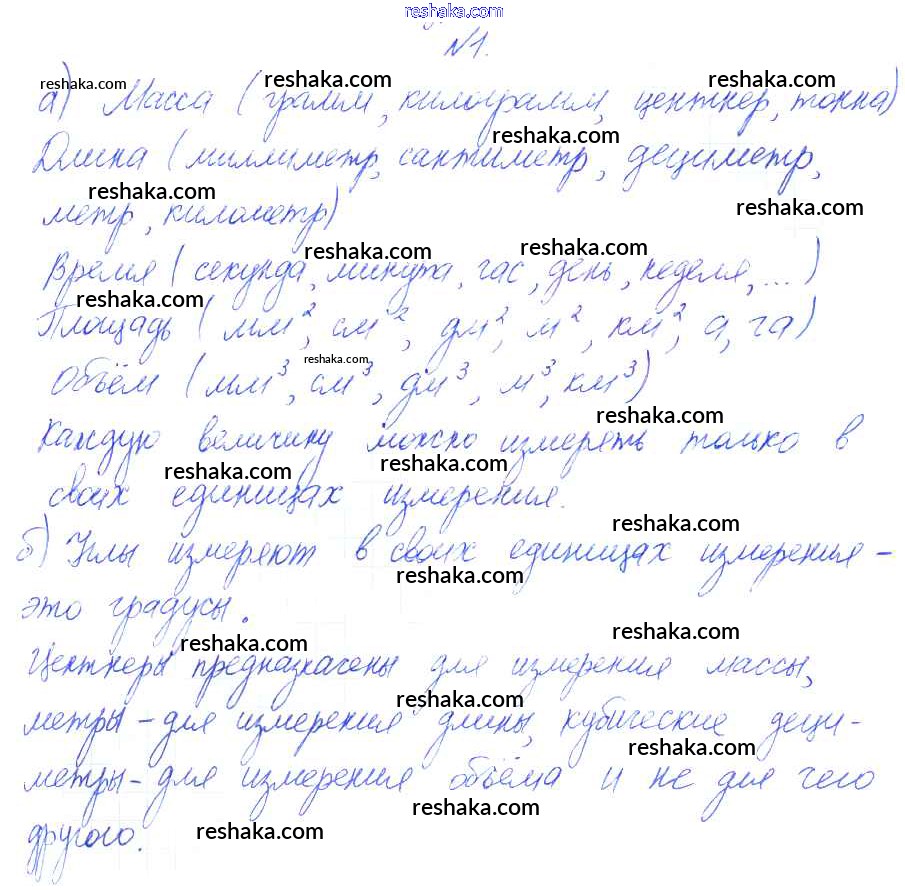 reshaka.com
№1.
reshaka.com reshaka.com reshaka.com
а) Масса (грамм, килограмм, центнер, тонна)
reshaka.com
Длина (миллиметр, сантиметр, дециметр,
reshaka.com reshaka.com
метр, километр)
reshaka.com reshaka.com
Время (секунда, минута, час, день, неделя, ...)
reshaka.com
Площадь (мм², см², дм², м², км², а, га)
reshaka.com
Объём (мм³, см³, дм³, м³, км³)
reshaka.com
Каждую величину можно измерять только в
reshaka.com reshaka.com
своих единицах измерения.
reshaka.com
б) Углы измеряют в своих единицах измерения -
reshaka.com
это градусы.
reshaka.com reshaka.com
Центнеры предназначены для измерения массы,
reshaka.com
метры - для измерения длины, кубические деци-
reshaka.com
метры - для измерения объёма и не для чего
reshaka.com reshaka.com
другого.